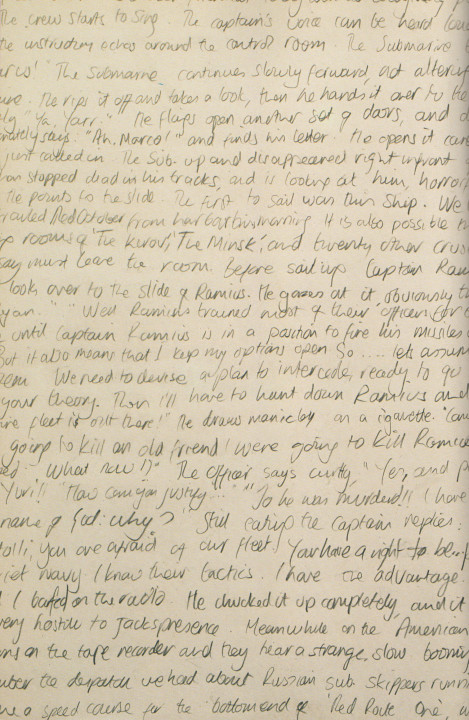 The crew starts to sing. The captain's voice can be heard
the instructory echos around the control room. The Submarine
The Submarine continues slowly forward, not
He rips it off and takes a look, then he hands it over to the
"Ya, Yarr." He flaps open another set of doors, and
says, "Ah, Marco!" and finds his letter. He opens it
just called in. The Sub. up and disappeared right infront
stopped dead in his tracks, and is looking at him,
He points to the slide. The first to sail was this ship. We
trailed Red October from harbor this morning. It is also possible
'The Kurov', 'The Minsk', and twenty other
must leave the room. Before said up Captain
look over to the slide of Ramius. He gazes at it, obviously
"Well Ramius trained most of their officers
until Captain Ramius is in a position to fire his missiles
But it also means that I keep my options open. So..... lets
We need to devise a plan to intercode, ready to go
your theory. Then I'll have to hunt down Ramius and
fleet is out there!" He draws manicley on a cigarette.
going to kill an old friend! We're going to kill
What now!?" The officer says curtly, "Yes, and
Yuri!! "How can you justify..." "So he was murdered!! I have
name of God: why? Still eating the captain replies:
you are afraid of our fleet! You have a right to be.
navy I know their tactics. I have the advantage.
I on the radio. He chucked it up completely, and it
very hostile to Jack's presence. Meanwhile on the American
on the tape recorder and they hear a strange, slow
the despatch we had about Russian sub skippers
a speed course for the bottom end of 'Red Route One,